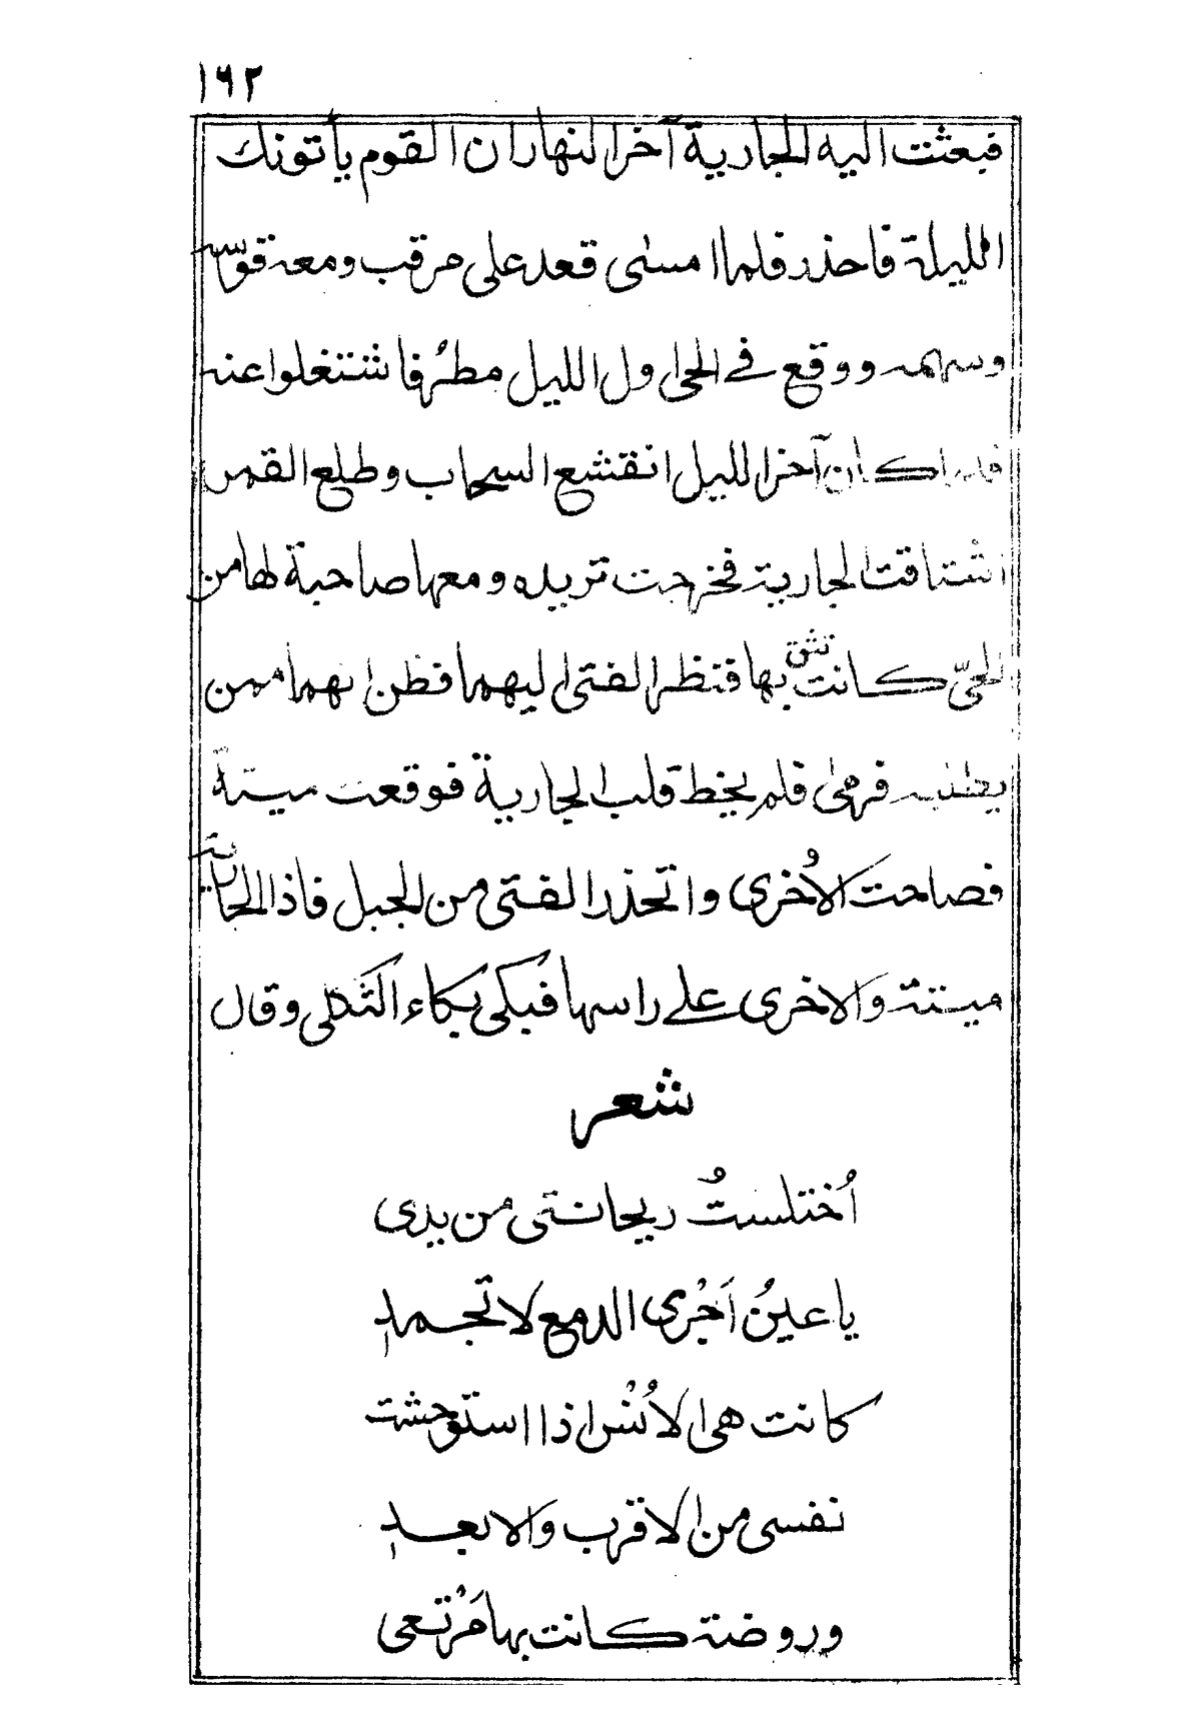 ١٦٢
فبعثت اليه الجارية آخر النهار ان القوم يأتونك
الليلة فاحذر فلما امسى قعد على مرقب ومعه قوسه
وسهمه ووقع في الحي اول الليل مطرٌ فاشتغلوا عنه
فلما كان آخر الليل انقشع السحاب وطلع القمر
اشتاقت الجارية فخرجت تريده ومعها صاحبة لها من
الحيّ كانت تثق بها فنظر الفتى اليهما فظن انهما ممن
يطلبه فرمى فلم يخط قلب الجارية فوقعت ميتةً
فصاحت الاُخرى وانحذر الفتى من الجبل فاذا الجارية
ميتة والاخرى على راسها فبكى بكاء الثكلى وقال
شعر
اُختلستُ ريحانتي من يدى
يا عينُ اَجْرى الدمع لا تجمدِ
كانت هي الاُنْس اذا استوحشت
نفسي من الاقرب والابعدِ
وروضة كانت بها مَرْتعى